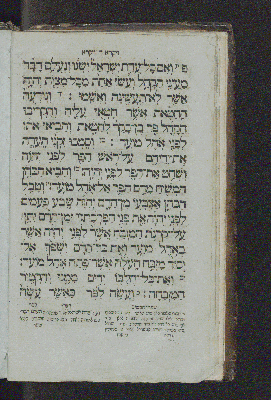 ויקרא ד ויקרא
פ ואם כל־עדת ישראל ישגו ונעלם דבר
מעיני הקהל ועשו אחת מכל־מצות יהוה
אשר לא־תעשינה ואשמו: ונודעה
החטאת אשר חטאו עליה והקריבו
הקהל פר בן־בקר לחטאת והביאו אתו
לפני אהל מועד: וסמכו זקני העדה
את־ידיהם על־ראש הפר לפני יהוה
ושחט את־הפר לפני יהוה: והביא הכהן
המשיח מדם הפר אל־אהל מועד: וטבל
הכהן אצבעו מן־הדם והזה שבע פעמים
לפני יהוה את פני הפרכת: ומן־הדם יתן
על־קרנת המזבח אשר לפני יהוה אשר
באהל מועד ואת כל־הדם ישפך אל־
יסוד מזבח העלה אשר־פתח אהל מועד:
ואת כל־חלבו ירים ממנו והקטיר
המזבחה: ועשה לפר כאשר עשה